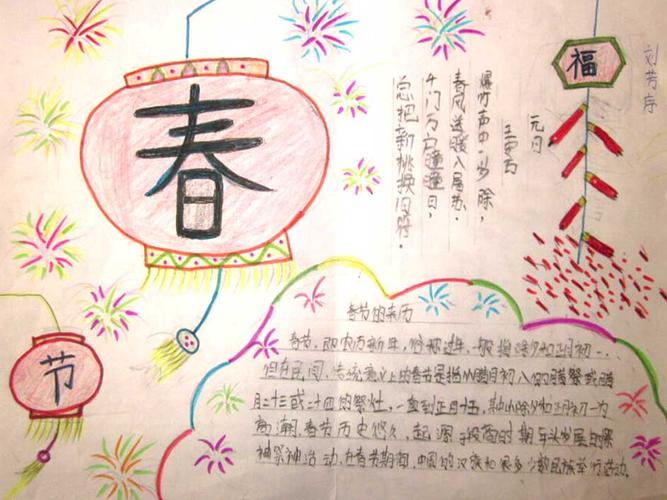 春
节
福
刘芳序
元日
王安石
爆竹声中一岁除,
春风送暖入屠苏.
千门万户瞳瞳日,
总把新桃换旧符.
春节的来历
春节,即农历新年,俗称过年,一般指除夕和正月初一.
但在民间,传统意义上的春节是指从腊月初八的腊祭或腊
月二十三或二十四的祭灶,一直到正月十五,其中以除夕和正月初一为
高潮.春节历史悠久,起源于殷商时期年头岁尾的祭
神祭神活动.在春节期间,中国的汉族和很多少数民族举行活动.